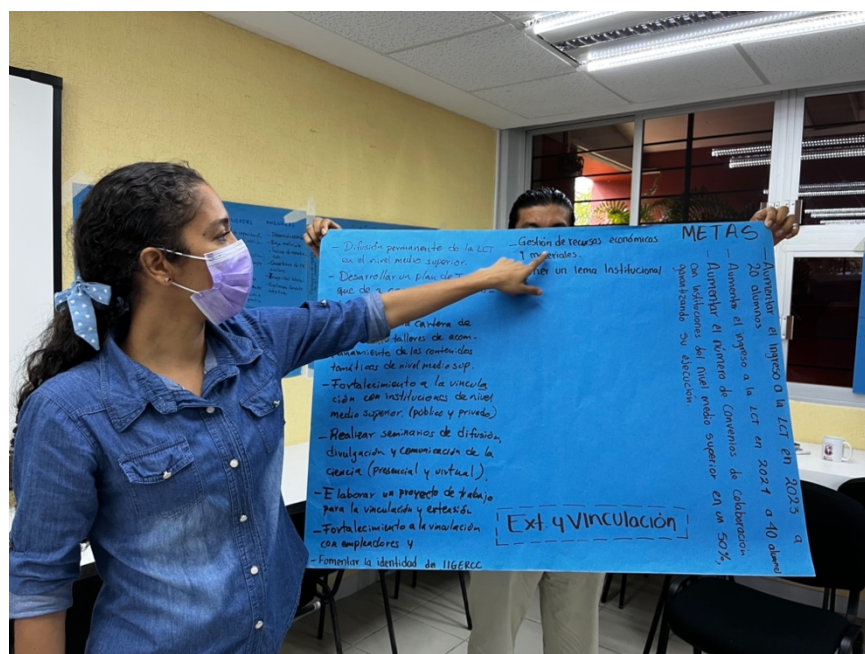 - Difusión permanente de la LCT
en el nivel medio superior.
- Desarrollar un plan de
que de a
cartera de
talleres de acom-
pañamiento de los contenidos
temáticos de nivel medio sup.
- Fortalecimiento a la vincula
ción con instituciones de nivel
medio superior. (público y privado)
- Realizar seminarios de difusión,
divulgación y comunicación de la
ciencia (presencial y virtual).
- Elaborar un proyecto de trabajo
para la vinculación y extensión
- Fortalecimiento a la vinculación
con empleadores y
- Fomentar la identidad de IIGERCC
- Gestión de recursos económicos
y materiales.
un lema Institucional
Ext. y Vinculación
METAS
- Aumentar el ingreso a la LCT en 2023 a
20 alumnos
- Aumentar el ingreso a la LCT en 2024 a 40 alumnos
- Aumentar el número de Convenios de Colaboración
con instituciones del nivel medio superior en un 50%,
garantizando su ejecución